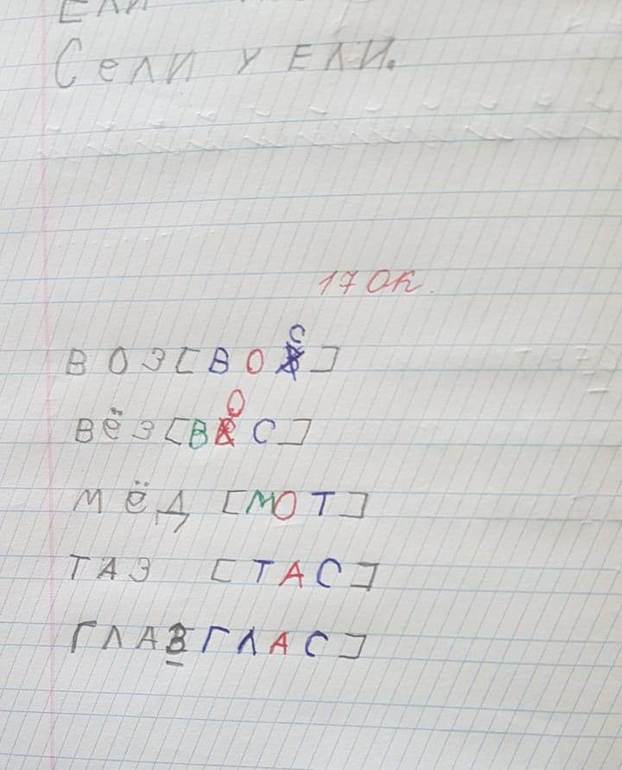 Ели
Сели у ели.
17 ок.
ВОЗ [ВОС]
ВЁЗ [ВОС]
МЁД [МОТ]
ТАЗ [ТАС]
ГЛАЗ [ГЛАС]